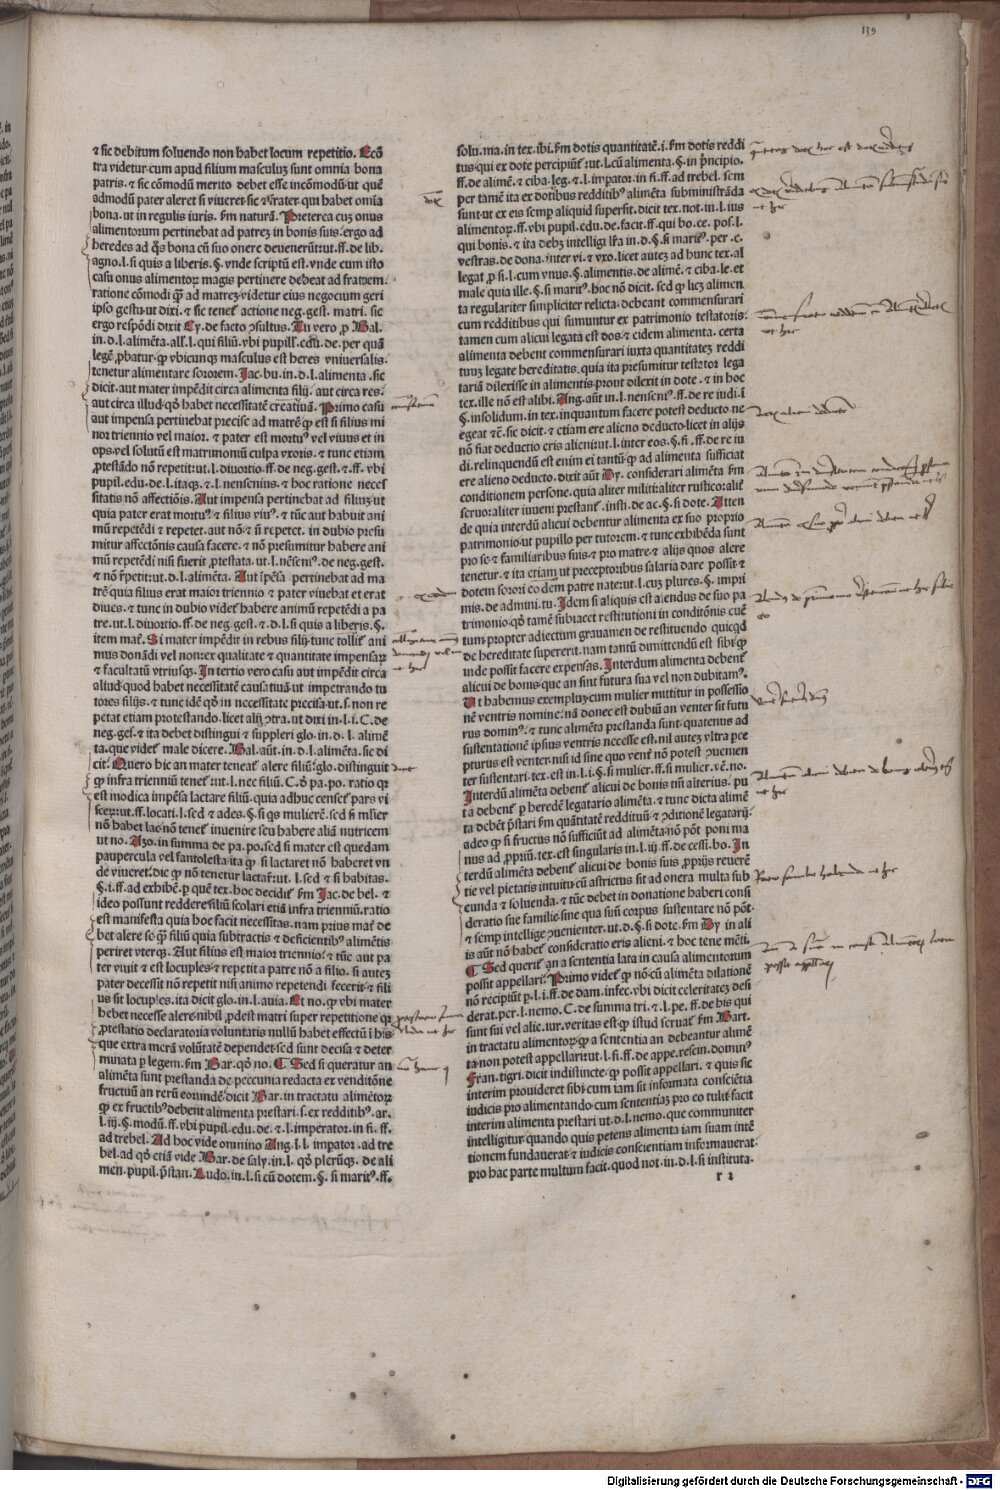 139
⁊ sic debitum soluendo non habet locum repetitio. Ecō
tra videtur cum apud filium masculuʒ sunt omnia bona
patris. ⁊ sic cōmodū merito debet esse incōmodū ut quē
admodū pater aleret si viueret sic ⁊ frater qui habet omīa
bona. ut in regulis iuris. ẜm naturā. Preterea cuʒ onus
alimentorum pertinebat ad patreʒ in bonis suis. ergo ad
heredes ad q̄s bona cū suo onere deuenerūt: ut. ff. de lib.
agno. l. si quis a liberis. §. vnde scriptū est. vnde cum isto
casu onus alimentoꝝ magis pertinere debeat ad fratrem.
ratione cōmodi q̄ʒ ad matreʒ videtur eius negocium geri
ipso gestu. ut dixi. ⁊ sic tenet̉ actione neg. gest. matri. sic
ergo respōdi dixit Cy. de facto ꝯsultus. In vero ꝓ Bal.
in. d. l. alimēta. all̄. l. qui filiū. vbi pupill. edu. de. per quā
legē ꝓbatur. ꝙ vbicunqʒ masculus est heres vniuersalis
tenetur alimentare sororem. Jac. bu. in. d. l. alimenta. sic
dicit. aut mater impēdit circa alimenta filij. aut circa res.
aut circa illud. qd̓ habet necessitatē creatiuā. Primo casu
aut impensa pertinebat precise ad matrē ꝙ est si filius mi
nor triennio vel maior. ⁊ pater est mortuꝰ vel viuus et in
ops. vel solutū est matrimoniū culpa vxoris. ⁊ tunc etiam
ꝓtestādo nō repetit: ut. l. diuortio. ff. de neg. gest. ⁊. ff. vbi
pupil. edu. de. l. itaqʒ. ⁊. l. nensenius. ⁊ hoc ratione neces
sitatis nō affectiōis. Aut impensa pertinebat ad filiuʒ ut
quia pater erat mortuꝰ ⁊ filius viuꝰ. ⁊ tūc aut habuit ani
mū repetēdi ⁊ repetet. aut nō. ⁊ nō repetet. in dubio presu
mitur affectōnis causa facere. ⁊ nō presumitur habere ani
mū repetēdi nisi fuerit ꝓtestata. ut. l. nēseniꝰ. de neg. gest.
⁊ nō r̄petit: ut. d. l. alimēta. Aut īpēsa pertinebat ad ma
trē quia filius erat maior triennio ⁊ pater viuebat et erat
diues. ⁊ tunc in dubio videt̉ habere animū repetēdi a pa
tre. ut. l. diuortio. ff. de neg. gest. ⁊. d. l. si quis a liberis. §.
item mat̉. Si mater impēdit in rebus filij. tunc tollit̉ ani
mus donādi vel non: ex qualitate ⁊ quantitate impensaꝝ
⁊ facultatū vtriusqʒ. In tertio vero casu aut impēdit circa
aliud. quod habet necessitatē causatiuā. ut impetrando tu
tores filijs. ⁊ tunc idē qd̓ in necessitate precisa. ut. s. non re
petat etiam protestando. licet alij ꝯtra. ut dixi in. l. i. C. de
neg. ges. ⁊ ita debet distingui ⁊ suppleri glo. in. d. l. alimē
ta. que videt̉ male dicere. Bal. aūt. in. d. l. alimēta. sic di
cit. Quero hic an mater teneat̉ alere filiū. glo. distinguit
ꝙ infra trienniū tenet̉. ut. l. nec filiū. C. d̓ pa. po. ratio qꝛ
est modica impēsa lactare filiū. quia adhuc censet̉ pars vi
scerū: ut. ff. locati. l. sed ⁊ ades. §. si qs mulierē. sed si mīlier
nō habet lac nō tenet̉ inuenire seu habere aliā nutricem
ut no. Azo. in summa de pa. po. sed si mater est quedam
paupercula vel fantolesta. ita ꝙ si lactaret nō haberet vn
de viueret. dic ꝙ nō tenetur lactar̄: ut. l. sed ⁊ si habitas.
§. i. ff. ad exhibē. p̱ quē tex. hoc decidit̉ ẜm Jac. de bel. ⁊
ideo possunt reddere filiū scolari etiā infra trienniū. ratio
est manifesta quia hoc facit necessitas. nam prius mat̉ de
bet alere se qʒ filiū quia subtractis ⁊ deficientibꝰ alimētis
periret vterqʒ. Aut filius est maior trienniō. ⁊ tūc aut pa
ter viuit ⁊ est locuples. ⁊ repetit a patre nō a filio. si autez
pater decessit nō repetit nisi animo repetendi fecerit ⁊ fili
us sit locuples. ita dicit glo. in. l. auia. Et no. ꝙ vbi mater
hebet necesse alere. nihil ꝓdest matri super repetitione qꝛ
ꝓtestatio declaratoria voluntatis nullū habet effectū ī his
que extra merā volūtatē dependet. sed sunt decisa ⁊ deter
minata ꝑ legem. ẜm Bar. qd̓ no. ¶ Sed si queratur an
alimēta sunt prestanda de peccunia redacta ex venditōne
fructuū an rerū eorundē. dicit Bar. in tractatu alimētoꝝ
ꝙ ex fructibꝰ debent alimenta prestari. s. ex redditibꝰ. ar.
l. iij. §. modū. ff. vbi pupil. edu. de. ⁊. l. imperator. in fi. ff.
ad trebel. Ad hoc vide omnino Ang. l. l. impator. ad tre
bel. ad qd̓ etiā vide Bar. de saly. in. l. qd̓ plerūqʒ. de ali
men. pupil. p̄stan. Ludo. in. l. si cū dotem. §. si maritꝰ. ff.
solu. ma. in tex. ibi. ẜm dotis quantitatē. i. ẜm dotis reddi
tus. qui ex dote percipiunt̉. ut. l. cū alimenta. §. in p̄ncipio.
ff. de alimē. ⁊ ciba. leg. ⁊. l. impator. in fi. ff. ad trebel. sem
per tamē ita ex dotibus redditibꝰ alimēta subministrāda
sunt. ut ex eis semp aliquid supersit. dicit tex. not. in. l. ius
alimentoꝝ. ff. vbi pupil. edu. de. facit. ff. qui bo. ce. pos. l.
qui bonis. ⁊ ita debʒ intelligi lr̄a in. d. §. si maritꝰ. per. c.
vestras. de dona. inter vi. ⁊ vxo. licet autez ad hunc tex. al
legat ꝓ si. l. cum vnus. §. alimentis. de alimē. ⁊ ciba. le. et
male quia ille. §. si maritꝰ. hoc nō dicit. sed ꝙ licʒ alimen
ta regulariter simpliciter relicta. debeant commensurari
cum redditibus qui sumuntur ex patrimonio testatoris.
tamen cum alicui legata est dos. ⁊ eidem alimenta. certa
alimenta debent commensurari iuxta quantitateʒ reddi
tuuʒ legate hereditatis. quia ita presumitur testator lega
tariā dilexisse in alimentis. prout dilexit in dote. ⁊ in hoc
tex. ille nō est alibi. Ang. aūt in. l. nenseniꝰ. ff. de re iudi. ī
§. insolidum. in tex. inquantum facere potest deducto ne
egeat ⁊c̄. sic dicit. ⁊ etiam ere alieno deducto. licet in alijs
nō fiat deductio eris alieni: ut. l. inter eos. §. fi. ff. de re iu
di. relinquendū est enim ei tantū. ꝙ ad alimenta sufficiat
ere alieno deducto. dixit aūt Dy. considerari alimēta ẜm
conditionem persone. quia aliter militi: aliter rustico: alit̉
seruo: aliter iuueni prestant̉. insti. de ac. §. si dote. Atten
de quia interdū alicui debentur alimenta ex suo proprio
patrimonio. ut pupillo per tutorem. ⁊ tunc exhibēda sunt
pro se ⁊ familiaribus suis. ⁊ pro matre. ⁊ alijs quos alere
tenetur. ⁊ ita etiam ut preceptoribus salaria dare possit ⁊
dotem sorori eodem patre nate: ut. l. cuʒ plures. §. impri
mis. de admini. tu. Idem si aliquis est alendus de suo pa
trimonio. qd̓ tamē subiacet restitutioni in conditōnis euē
tum. propter adiectum grauamen de restituendo quicqd
de hereditate supererit. nam tantū dimittendū est sibi. ꝙ
inde possit facere expensas. Interdum alimenta debent̉
alicui de bonis. que an sint futura sua vel non dubitamꝰ.
Ut habemus exempluʒ. cum mulier mittitur in possessio
nē ventris nomine. nā donec est dubiū an venter sit futu
rus dominꝰ. ⁊ tunc alimēta prestanda sunt. quatenus ad
sustentationē ipsius ventris necesse est. nil autez vltra pce
pturus est venter. nisi id sine quo vent̉ nō potest ꝯuenien
ter sustentari. tex. est in. l. i. §. si mulier. ff. si mulier. vē. no.
Interdū alimēta debent̉ alicui de bonis nm̄ alterius. pu
ta debent̉ ꝑ heredē legatario alimēta. ⁊ tunc dicta alimē
ta debēt p̄stari ẜm quātitatē reddituū. ⁊ ꝯditionē legatarij.
adeo ꝙ si fructus nō sufficiūt ad alimēta. nō pōt poni ma
nus ad ꝓpriū. tex. est singularis in. l. iij. ff. de cessi. bo. In
terdū alimēta debent̉ alicui de bonis suis ꝓprijs reuerē
tie vel pietatis intuitu cū astrictus sit ad onera multa sub
eunda ⁊ soluenda. ⁊ tūc debet in donatione haberi consi
deratio sue familie. sine qua suū corpus sustentare nō pōt.
⁊ semp intellige ꝯuenienter. ut. d. §. si dote. ẜm Dy in ali
is aūt nō habet̉ consideratio eris alieni. ⁊ hoc tene mēti.
¶ Sed querit̉ an a sententia lata in causa alimentorum
possit appellari. Primo videt̉ ꝙ nō. cū alimēta dilationē
nō recipiūt p. l. i. ff. de dam. infec. vbi dicit celeritatez desi
derat. per. l. nemo. C. de summa tri. ⁊. l. pe. ff. de his qui
sunt sui vel alie. iur. veritas est. ꝙ istud seruat̉ ẜm Bart.
in tractatu alimentoꝝ. ꝙ a sententia an debeantur alimē
ta. non potest appellari. ut. l. si. ff. de appe. rescin. dominꝰ
Fran. tigri. dicit indistincte. ꝙ possit appellari. ⁊ quis sic
interim prouideret sibi cum iam sit informata consciētia
iudicis pro alimentando. cum sententiaʒ pro eo tulit. facit
interim alimenta prestari ut. d. l. nemo. que communiter
intelligitur quando quis petens alimenta iam suam intē
tionem fundauerat. ⁊ iudicis conscientiam informauerat.
pro hac parte multum facit. quod not. in. d. l. si instituta.
r 2
Digitalisierung gefördert durch die Deutsche Forschungsgemeinschaft - DFG